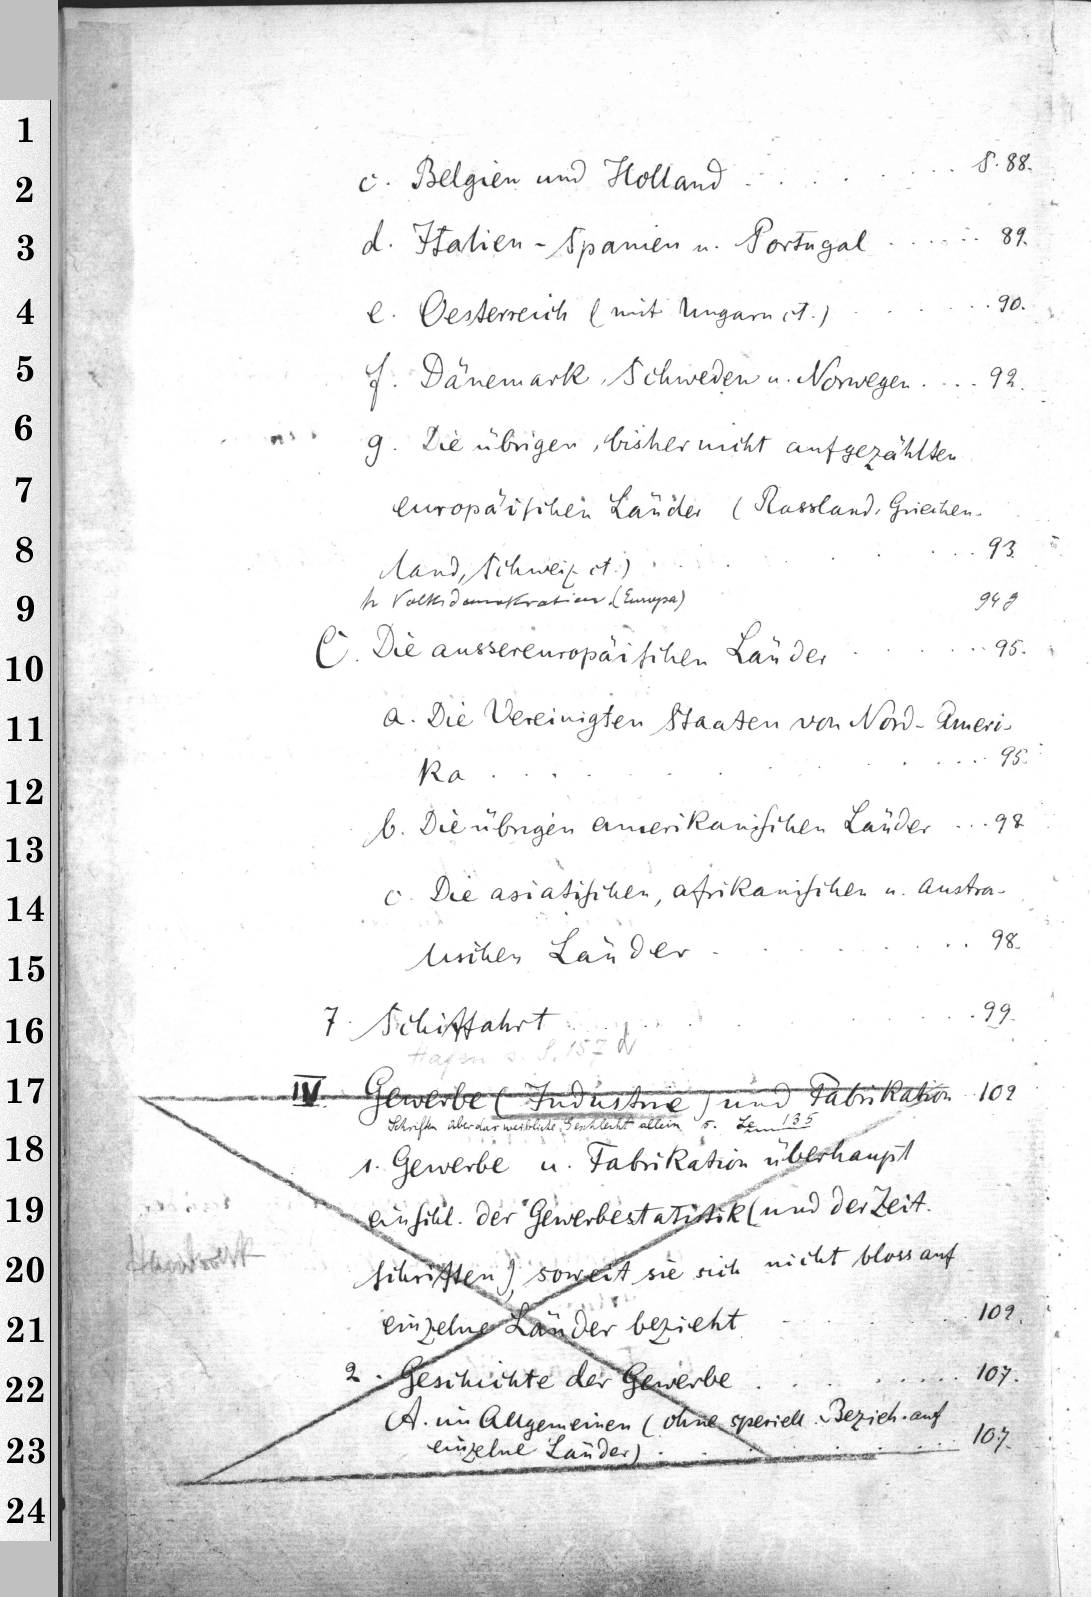 1
2
3
4
5
6
7
8
9
10
11
12
13
14
15
16
17
18
19
20
21
22
23
24
c. Belgien und Holland . . . . . . . . . S. 88.
d. Italien - Spanien u. Portugal . . . . . . 89.
e. Oesterreich (mit Ungarn ct.) . . . . . . 90.
f. Dänemark, Schweden u. Norwegen . . . . 92.
g. Die übrigen, bisher nicht aufgezählten
europäischen Länder (Russland, Griechen-
land, Schweiz ct.) . . . . . . . 93.
h Volksdemokratien (Europa) 94
C. Die aussereuropäischen Länder . . . . . . 95.
a. Die Vereinigten Staaten von Nord-Ameri-
ka . . . . . . . . . . 95.
b. Die übrigen amerikanischen Länder . . . 98
c. Die asiatischen, afrikanischen u. austra-
lischen Länder . . . . . . . . 98.
7. Schiffahrt . . . . . . . . 99.
Hafen s. S. 157 d
IV. Gewerbe (Industrie) und Fabrikation . . 102
Schriften über das weibliche Geschlecht allein s. 135
1. Gewerbe u. Fabrikation überhaupt
einschl. der Gewerbestatistik (und der Zeit-
schriften) soweit sie sich nicht bloss auf
einzelne Länder bezieht . . . . . . 102.
2. Geschichte der Gewerbe . . . . . . . . 107.
(A. im Allgemeinen (ohne speciell. Bezieh. auf
einzelne Länder) . . . . . . . . 107.